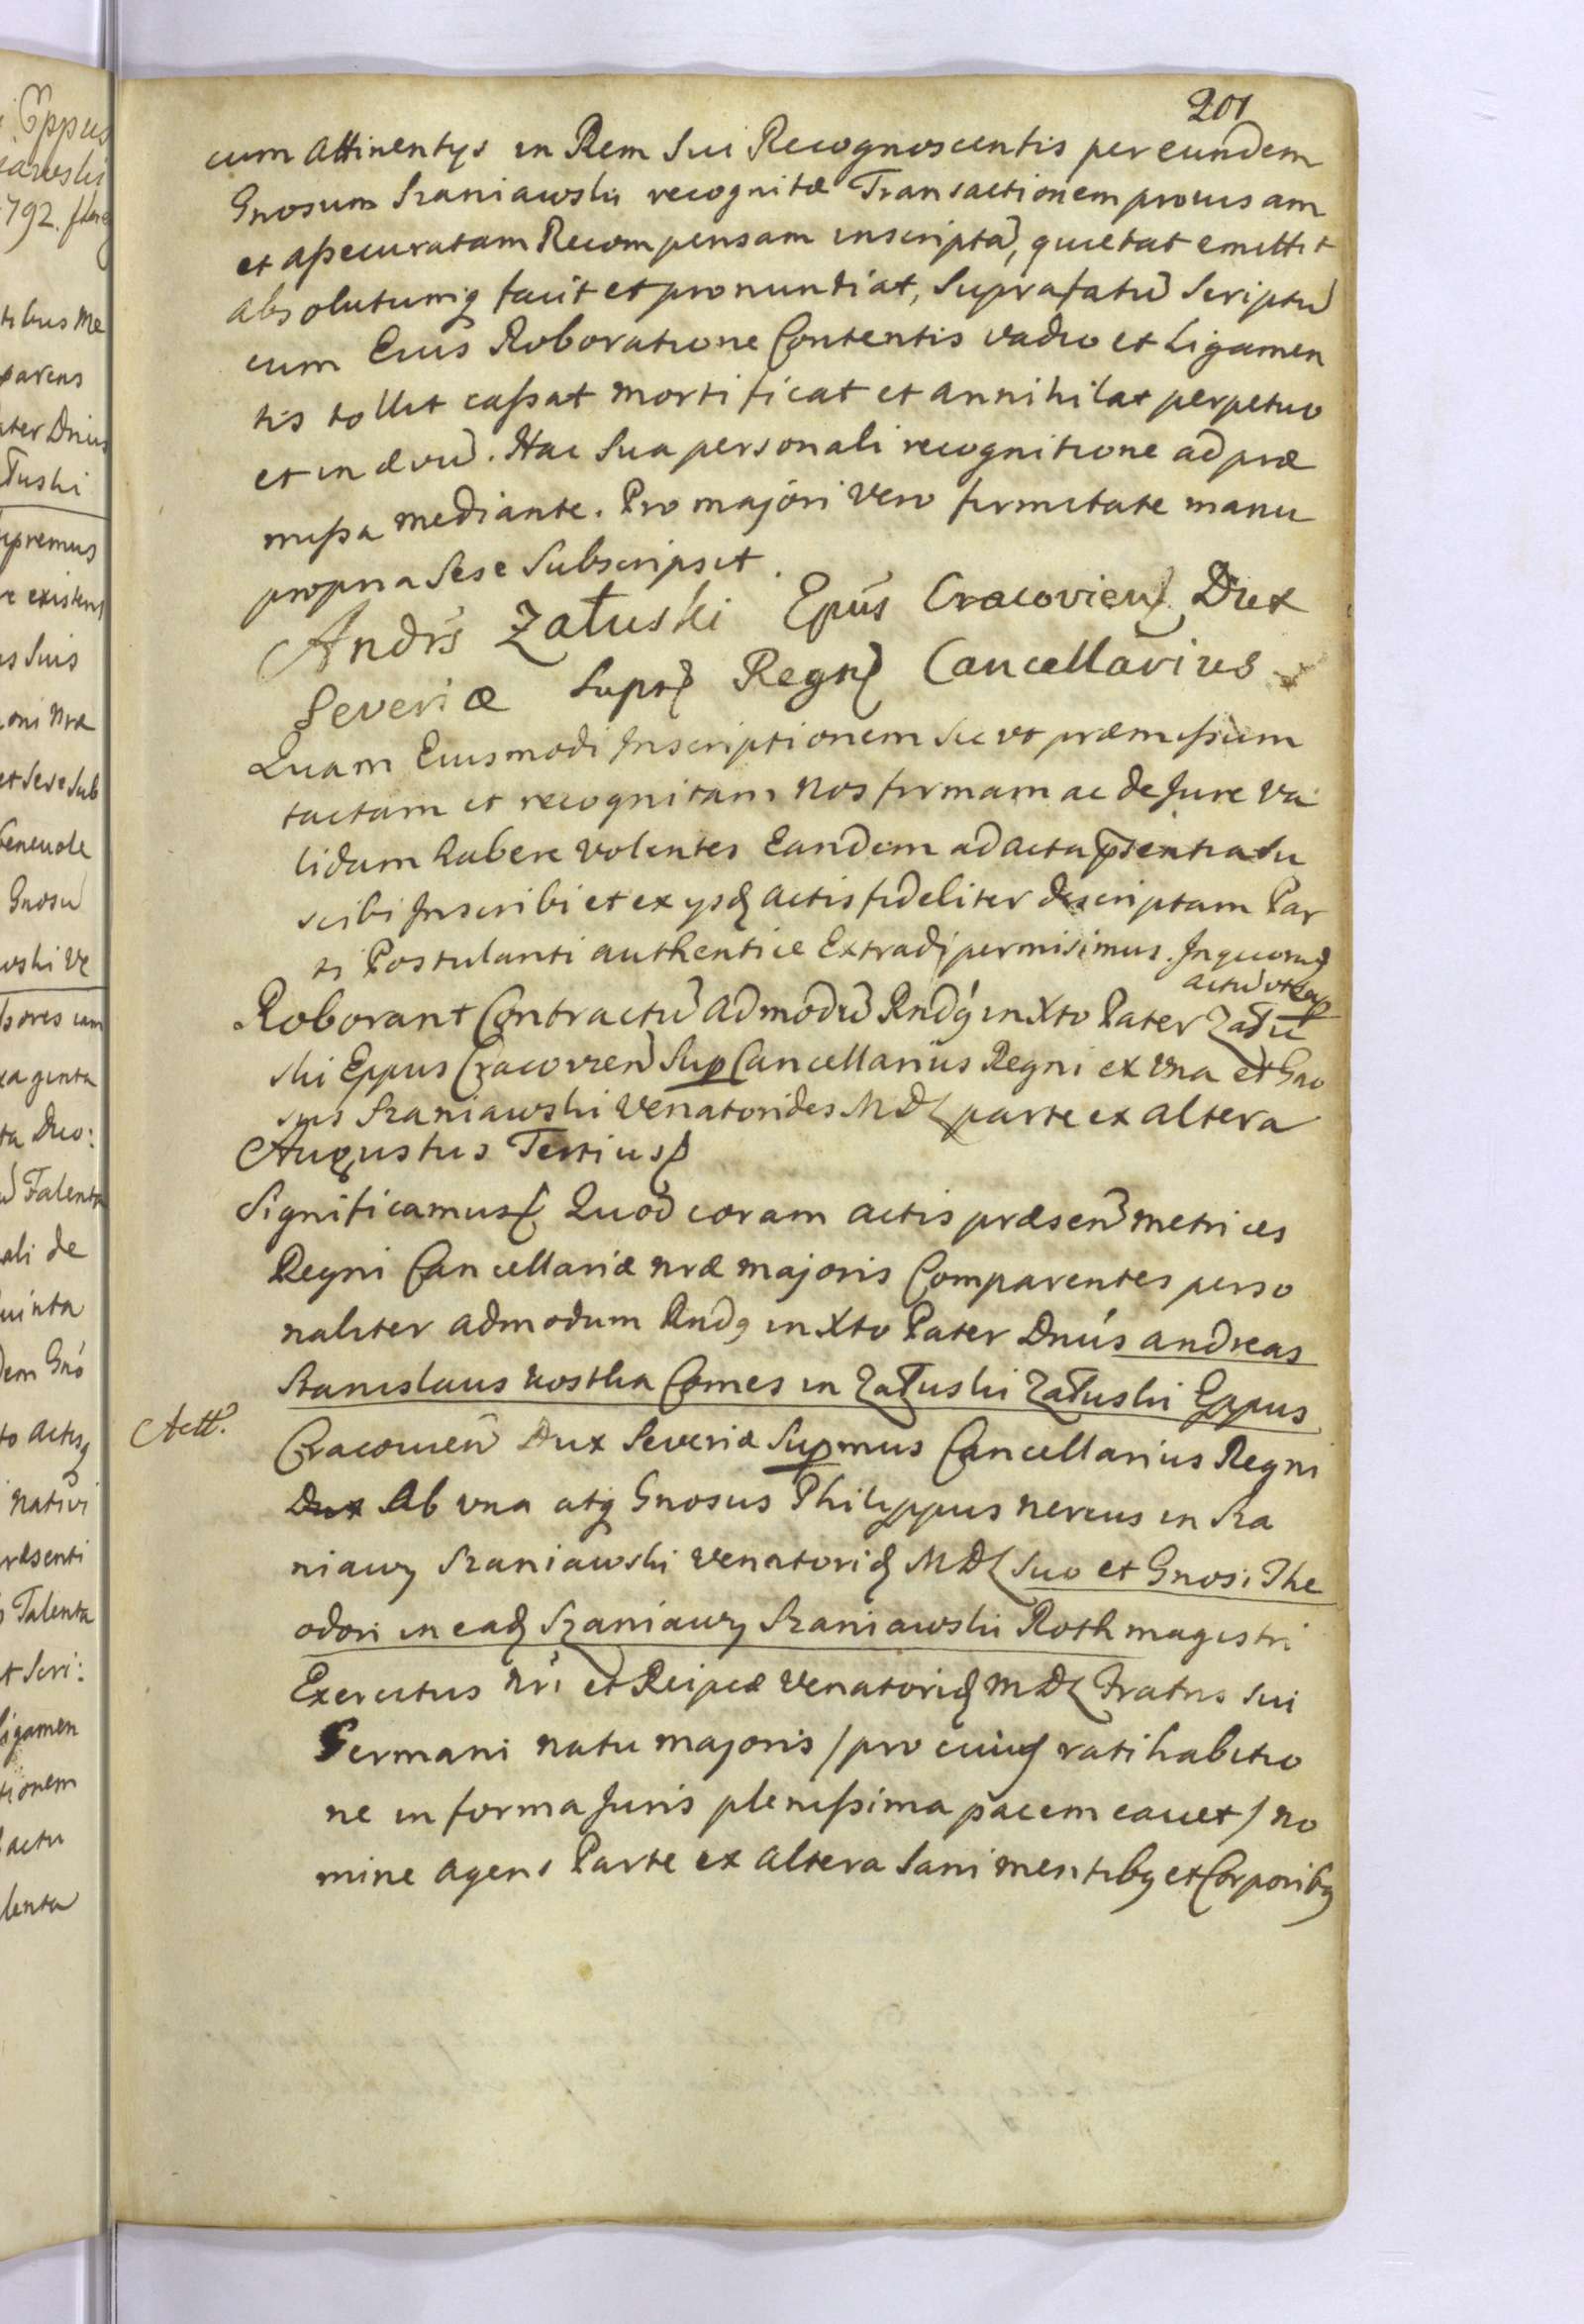 201
cum Attinentys in Rem Sui Recognoscentis per eundem
Gnosum Szaniawski recognitæ Transactionem provisam
et assecuratam Recompensam inscriptã, quietat emittit
absolutumq facit et pronuntiat, Suprafatũ Scriptũ
cum Eius Roboratione Contentis vadio et Ligamen
tis tollit cassat mortificat et annihilat perpetuo
et in ævũ. Hac Sua personali recognitione ad præ
missa mediante. Pro majori vero firmitate manu
propria Sese Subscripsit.
Andrs Załuski Epus Cracovien Dux
Severiæ Supr Regn Cancellarius
Quam Eiusmodi Inscriptionem Sic ut præmissum
factam et recognitam nos firmam ac de Jure va
lidam habere volentes Eandem ad acta psentia Su
scibi Inscribi et ex ysd actis fideliter descriptam Par
ti Postulanti authentice Extradi permisimus. In quorũ
actũ ut sup
Roborant Contractũ admodũ Rndq in Xto Pater Zału
ski Eppus Cracovien Sup Cancellarius Regni ex Una et Gno
sus Szaniawski Venatorides MDL parte ex altera
Augustus Tertius
Significamus Quod coram actis præsen metrices
Regni Cancellariæ nræ majoris Comparentes perso
naliter admodum Rndq in Xto Pater Dnus Andreas
Stanislaus Kostka Comes in Załuski Załuski Eppus
Actt.
Cracovien Dux Severiæ Supmus Cancellarius Regni
Dux Ab una atq Gnosus Philippus Nereus in Sza
niawy Szaniawski Venatorid MDL Suo et Gnosi The
odori in ead Szaniawy Szaniawski Rothmagistri
Exercitus nri et Reipcæ Venatorid MDL Fratris Sui
Germani natu majoris / pro cuius ratihabitio
ne in forma Juris plenissima pacem cavet / no
mine agens Parte ex altera Sani mentibq et Corporibq